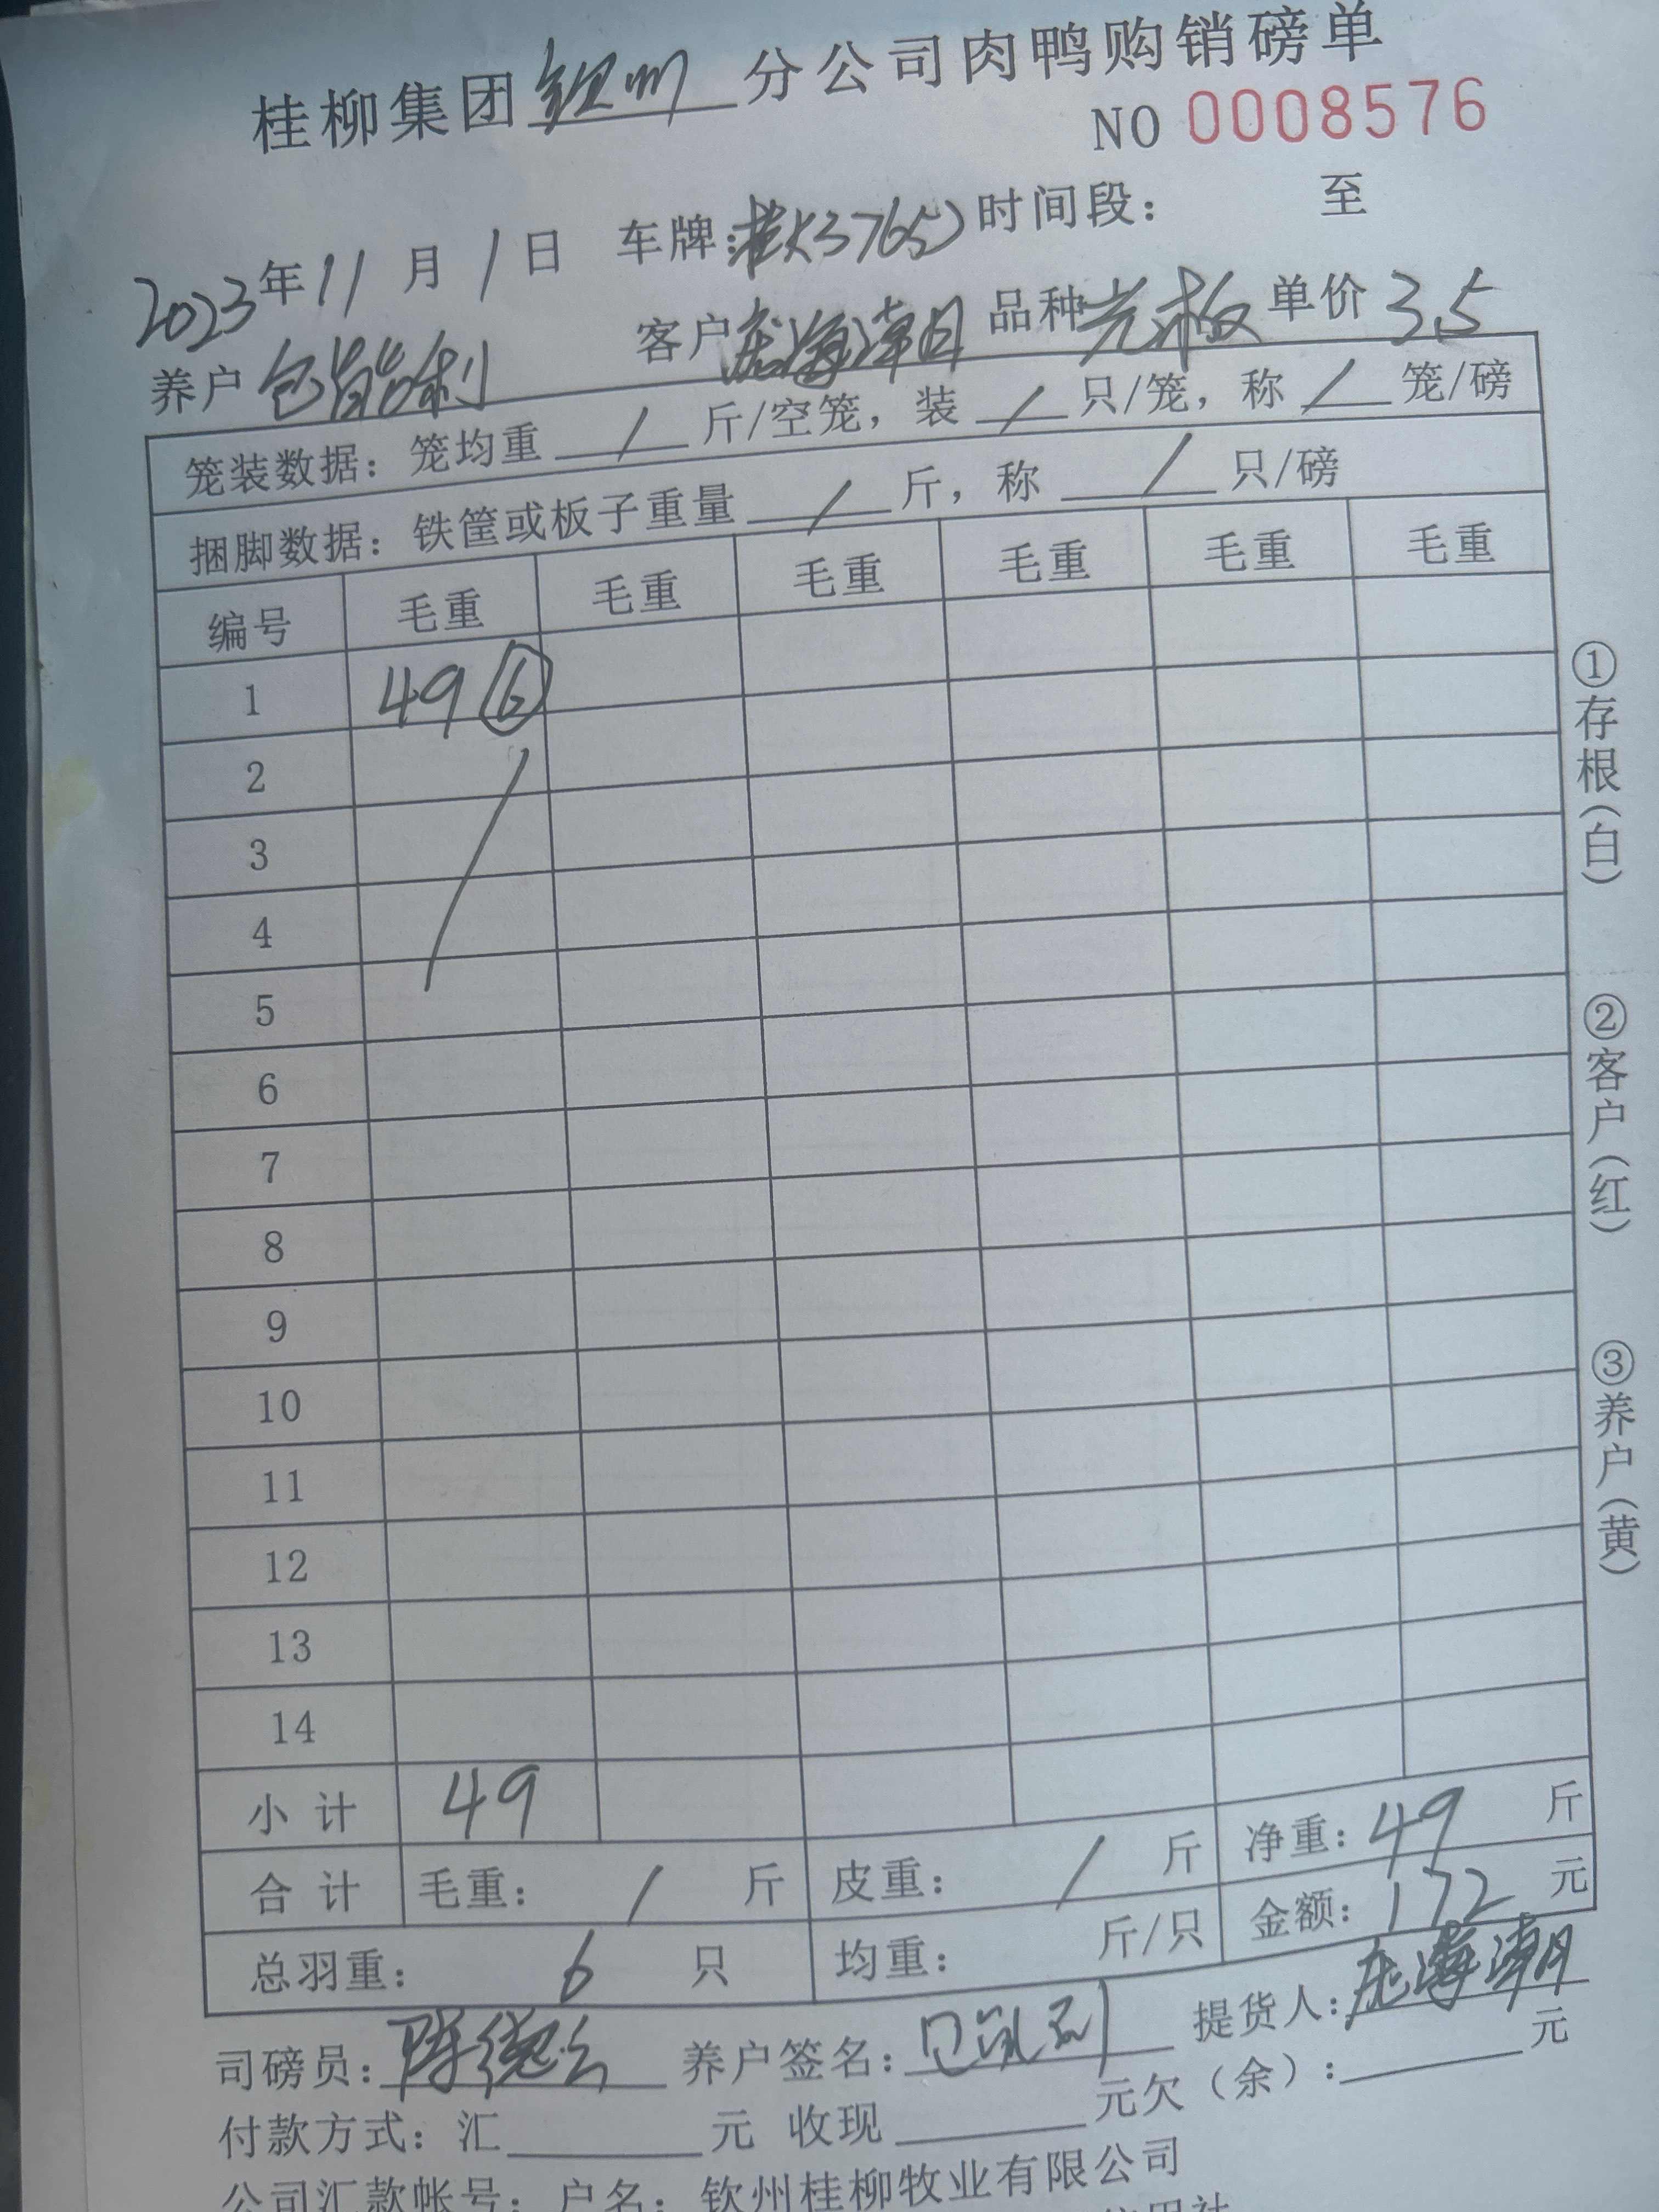 桂柳集团钦州分公司肉鸭购销磅单
NO 0008576
2023年11月1日 车牌: 3765 时间段: 至
养户 客户庞海潮 品种光板 单价3.5
笼装数据: 笼均重 / 斤/空笼, 装 / 只/笼, 称 / 笼/磅
捆脚数据: 铁筐或板子重量 / 斤, 称 / 只/磅
编号 毛重 毛重 毛重 毛重 毛重 毛重
1 49 ⑥
2
3
4
5
6
7
8
9
10
11
12
13
14
小计 49
合计 毛重: / 斤 皮重: / 斤 净重: 49 斤
总羽重: 6 只 均重: 斤/只 金额: 172 元
司磅员: 陈德 养户签名: 提货人: 庞海潮
付款方式: 汇 元 收现 元欠(余): 元
公司汇款帐号: 户名: 钦州桂柳牧业有限公司
①存根(白)
②客户(红)
③养户(黄)